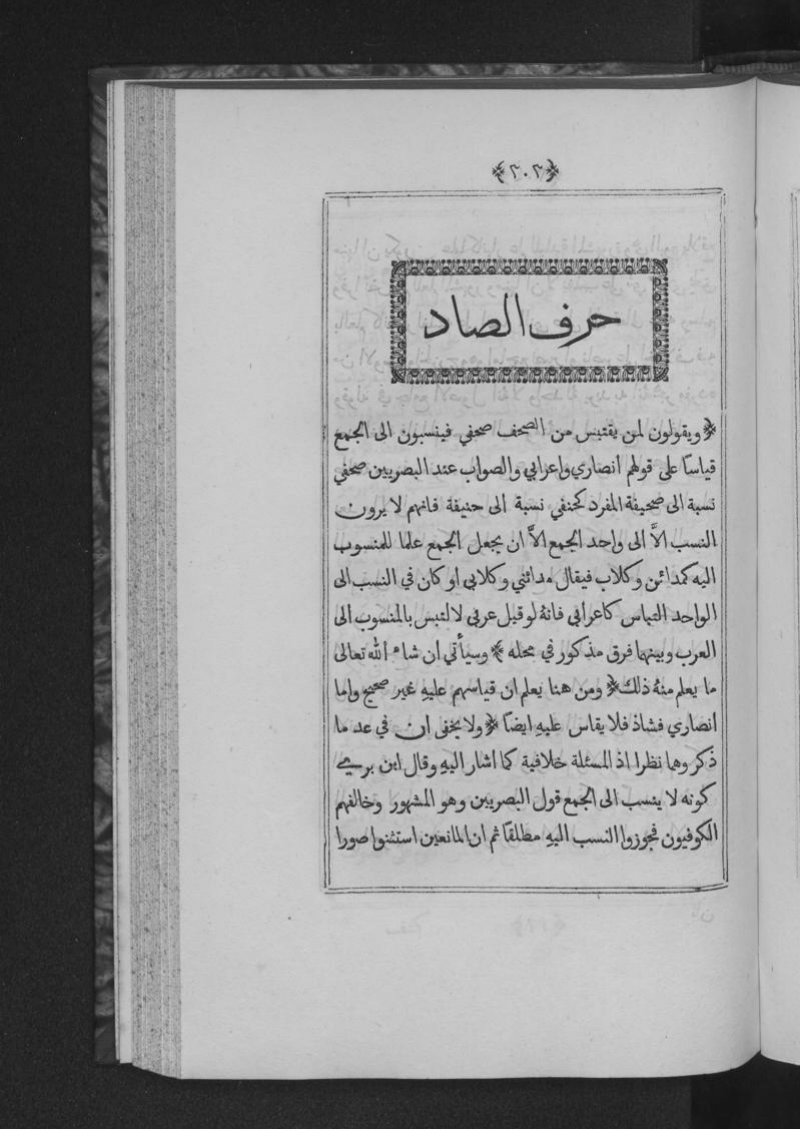 ﴿٢٠٢﴾
حرف الصاد
﴿ ويقولون لمن يقتبس من الصحف صحفي فينسبون الى الجمع
قياسًا على قولهم انصاري واعرابي والصواب عند البصريين صحفي
نسبة الى صحيفة المفرد كحنفي نسبة الى حنيفة فانهم لا يرون
النسب الاَّ الى واحد الجمع الاَّ ان يجعل الجمع علما للمنسوب
اليه كمدائن وكلاب فيقال مدائني وكلابي او كان في النسب الى
الواحد التباس كاعرابي فانهُ لو قيل عربي لالتبس بالمنسوب الى
العرب وبينهما فرق مذكور في محله ﴾ وسيأتي ان شاء الله تعالى
ما يعلم منهُ ذلك ﴿ ومن هنا يعلم ان قياسهم عليهِ غير صحيح واما
انصاري فشاذ فلا يقاس عليهِ ايضًا ﴿ ولا يخفى ان في عد ما
ذكر وهما نظرا اذ المسئلة خلافية كما اشار اليهِ وقال ابن بري
كونه لا ينسب الى الجمع قول البصريين وهو المشهور وخالفهم
الكوفيون فجوزوا النسب اليهِ مطلقًا ثم ان المانعين استثنوا صورا